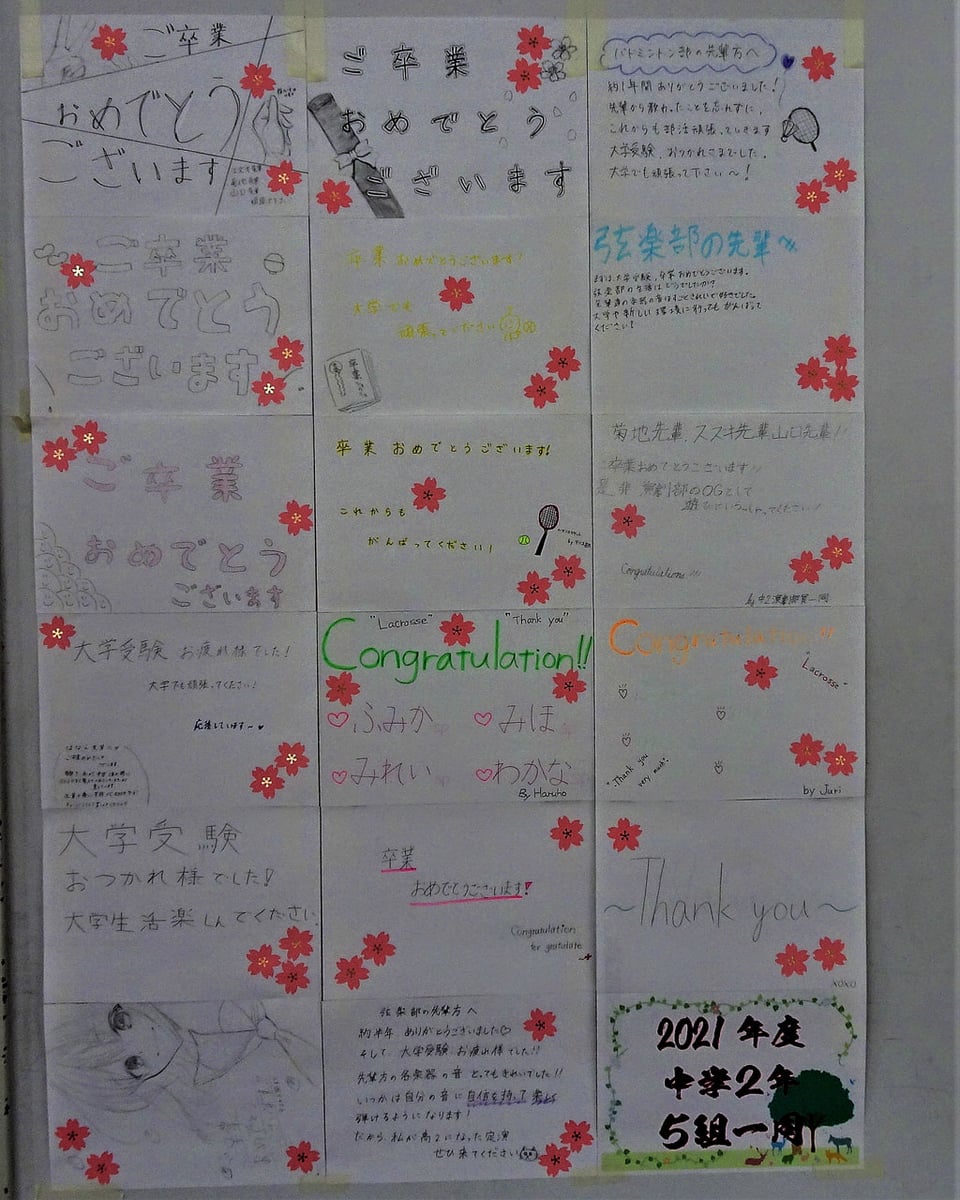 ご卒業
おめでとう
ございます
ご卒業
おめでとう
ございます
バドミントン部の先輩方へ
約1年間ありがとうございました!
先輩から教わったことを忘れずに、
これからも部活頑張っていきます
大学受験、おつかれさまでした。
大学でも頑張って下さい〜!
ご卒業
おめでとう
ございます
卒業おめでとうございます!
大学でも
頑張ってください
弦楽部の先輩へ
まずは大学受験、卒業おめでとうございます。
弦楽部の生活はどうでしたか?
大学や新しい環境に行ってもがんばって
ください!
ご卒業
おめでとう
ございます
卒業おめでとうございます!
これからも
がんばってください!
菊地先輩、スズキ先輩山口先輩!!
ご卒業おめでとうございます!!
是非演劇部のOGとして
遊びにいらしゃってください!
Congratulations!!!
by中2演劇部員一同
大学受験お疲れ様でした!
大学でも頑張ってください!
応援しています〜♥
"Lacrosse" "Thank you"
Congratulation!!
♡ふみか ♡みほ
♡みれい ♡わかな
By Haruho
Congratulation!!!
"Lacrosse"
"Thank you
very much".
by Juri
大学受験
おつかれ様でした!
大学生活楽しんでください
卒業
おめでとうございます!
Congratulation
for gratulate
~Thank you~
xoxo
弦楽部の先輩方へ
約半年ありがとうございました♡
そして、大学受験お疲れ様でした!!
先輩方の各楽器の音とってもきれいでした!!
いつかは自分の音に自信を持って楽しく
弾けるようになります!
だから、私が高2になった定演
ぜひ来てください
2021年度
中学2年
5組一同